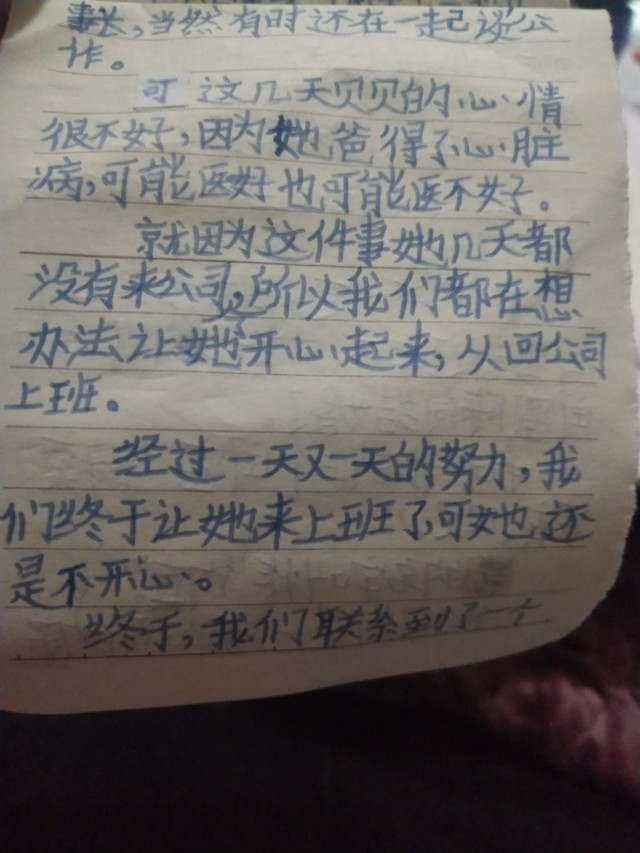 事长,当然有时还在一起谈公
作。
可这几天贝贝的心情
很不好,因为她爸得了心脏
病,可能医好也可能医不好。
就因为这件事她几天都
没有来公司,所以我们都在想
办法让她开心起来,从回公司
上班。
经过一天又一天的努力,我
们终于让她来上班了,可她还
是不开心。
终于,我们联系到了一个